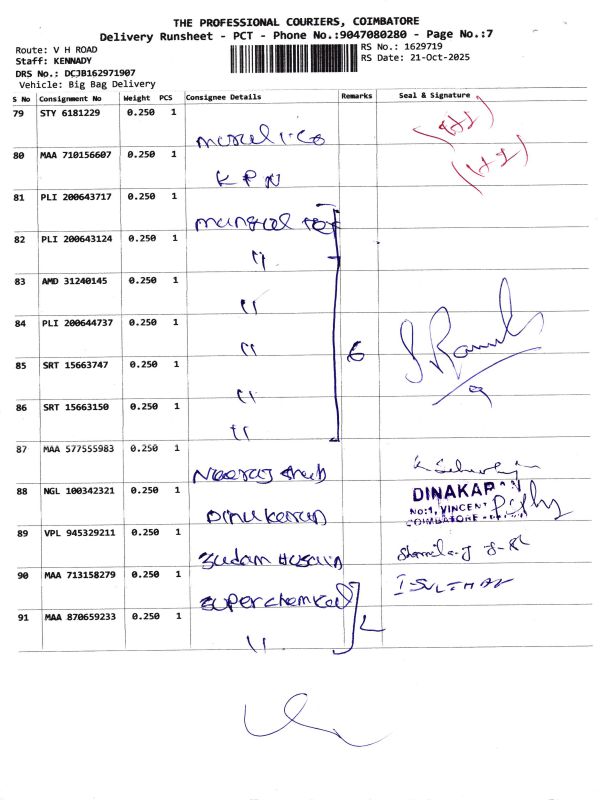 THE PROFESSIONAL COURIERS, COIMBATORE
Delivery Runsheet - PCT - Phone No.:9047080280 - Page No.:7
Route: V H ROAD
RS No.: 1629719
Staff: KENNADY
RS Date: 21-Oct-2025
DRS No.: DCJB162971907
Vehicle: Big Bag Delivery
S No Consignment No Weight PCS Consignee Details Remarks Seal & Signature
79 STY 6181229 0.250 1
80 MAA 710156607 0.250 1
KPN
81 PLI 200643717 0.250 1
82 PLI 200643124 0.250 1
"
83 AMD 31240145 0.250 1
"
84 PLI 200644737 0.250 1
" 6
85 SRT 15663747 0.250 1
"
86 SRT 15663150 0.250 1
"
87 MAA 577555983 0.250 1
88 NGL 100342321 0.250 1
DINAKARAN
NO:1, VINCENT
COIMBATORE
Dinakaran
89 VPL 945329211 0.250 1
90 MAA 713158279 0.250 1
superchemical
91 MAA 870659233 0.250 1
"